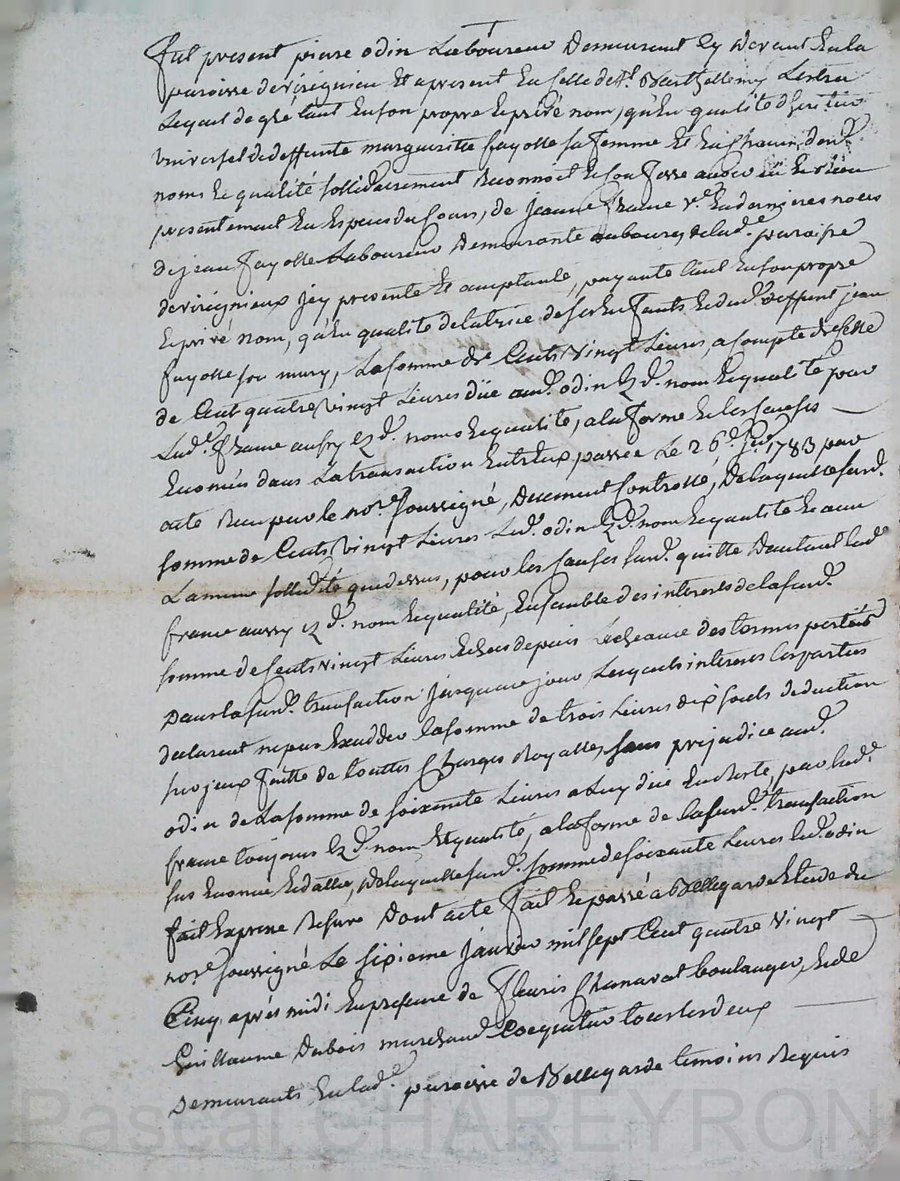 fut present pierre odin Laboureur Demeurant cy devant en la
paroisse de virignieu et apresent en celle de St. Barthellemy Lestra
Lequel de gré tant en son propre et privé nom, qu'en qualité d'heritier
universel de deffunte margueritte fayolle sa femme et en chacun desd.
noms et qualité sollidairement Reconnoit et confesse avoir eu et Receu
presentement en Especes du Cours, de jeanne france ve. en dernieres noces
de jean fayolle Laboureur Demeurante au bourg de lad.e paroisse
de virignieux jcy presente et acceptante, payante tant en son propre
et privé nom, qu'en qualité de tutrice de ses enfants et dud. deffunt jean
fayolle son mary, La somme de Cents vingt Livres, a compte de celle
de Cent quatre vingt Livres düe aud. odin ez d. nom et qualité par
Lad.e france aussy ez d. noms et qualité, a la forme et les causes
Enoncés dans La transaction Entr'eux passée Le 26e. 1783 par
acte Receu par le no.re soussigné, Deuement Controllé, De laquelle sus d.
somme de Cents vingt Livres Led. odin ez d. nom et qualité et avec
La meme sollid.té que dessus, pour les causes susd. quitte D'autant lad.e
france aussy ez d. nom et qualité, Ensemble des interets de la sus d.
somme de Cents vingt Livres Echeus depuis Lecheance des termes portés
Dans la sus d. transaction jusqua ce jour Lesquels interets les parties
declarent ne pas Exceder la somme de trois Livres dix sols deduction
sur jeux faitte de touttes Charges Royalles, sans prejudice aud.
odin de La somme de soixante Livres a Luy due En Reste, par lad.e
france toujours ez d. nom et qualité, a la forme de la sus d. transaction
sus Enoncé et datté, De laquelle sus d. somme de soixante Livres led. odin
fait Expresse Reserve Dont acte fait et passé a Bellegarde Etude du
no.re soussigné Le sixieme janvier mil sept Cent quatre vingt
Cinq après midi En presence de fleuris Chanavat boulanger, et de
Guillaume Dubois marchand Coquetier tous les deux
Demeurants En lad.e paroisse de Bellegarde temoins Requis
Pascal CHAREYRON